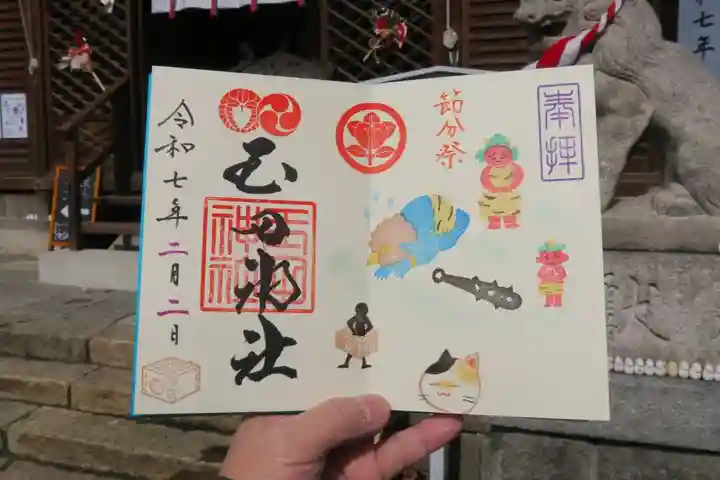 奉拝
節分祭
玉田神社
玉田
神社
令和七年二月二日
七年